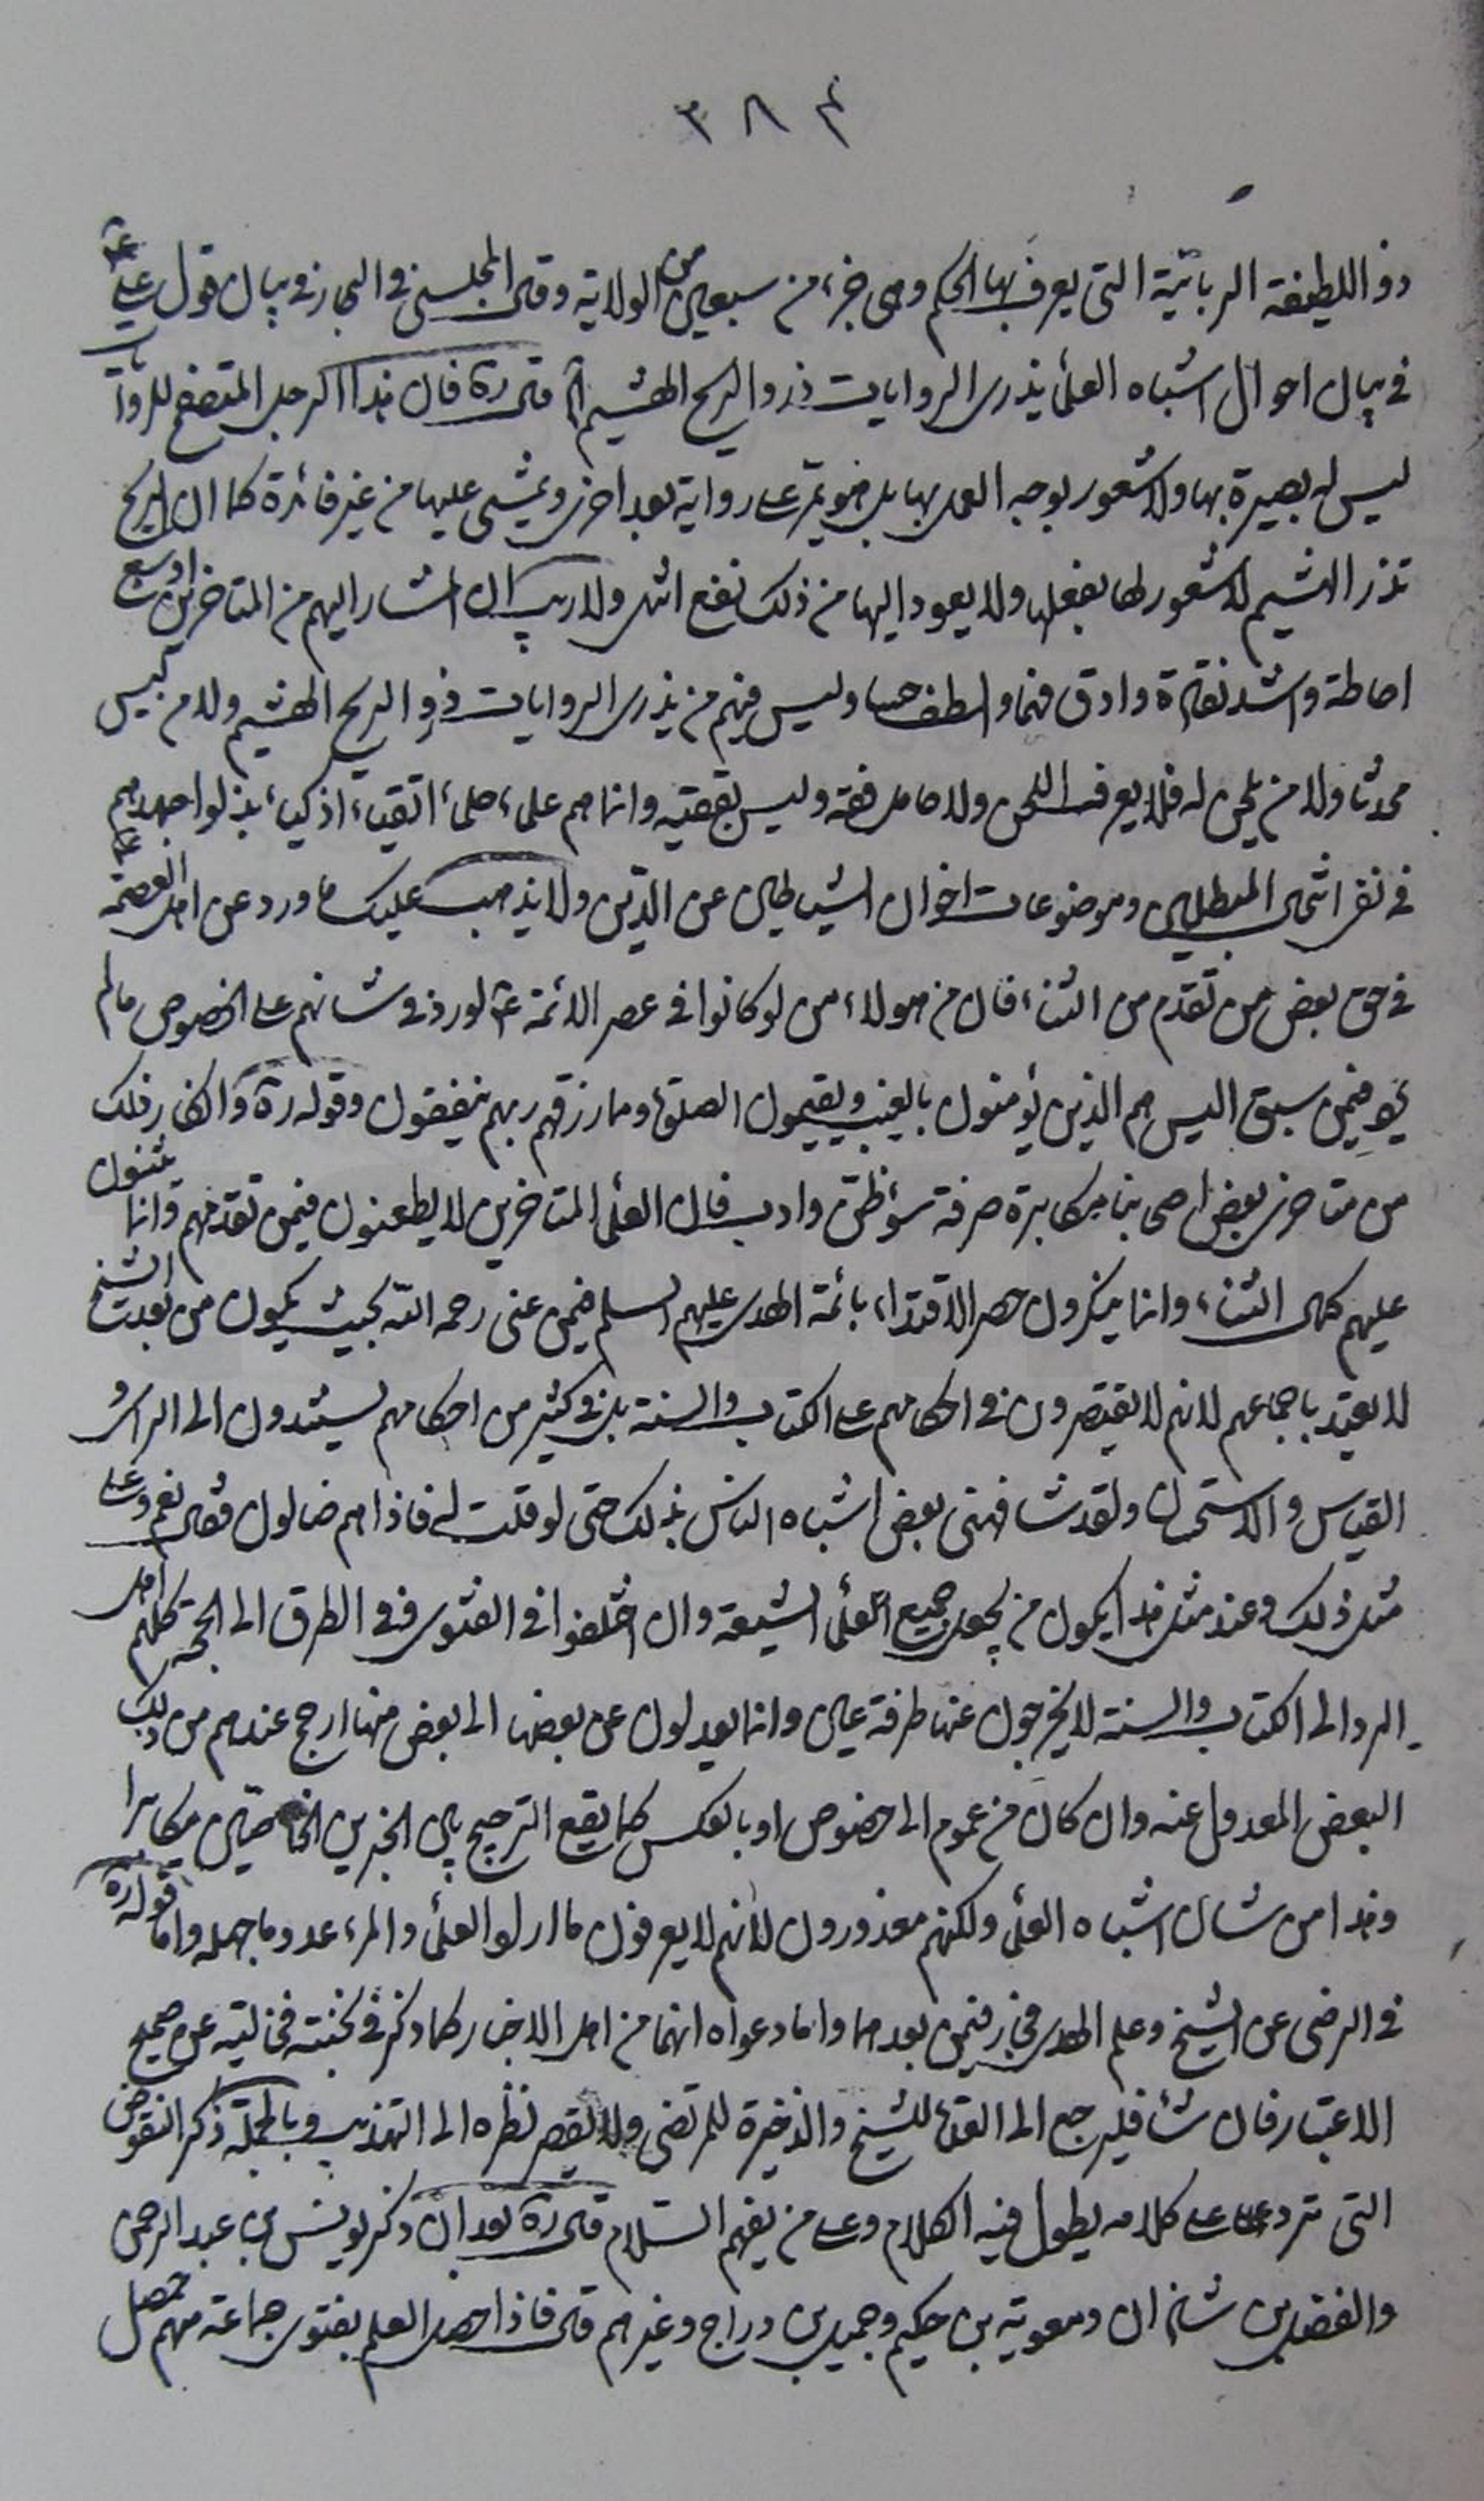 ٣٨٤
ذو اللطيفة الربانية التى يعرف بها الحكم وهى جزء من سبعين من الولاية وقال المجلسى فى البحار فى بيان قول على ع
فى بيان احوال اشباه العلماء يذرى الروايات ذرو الريح الهشيم قال ره فان هذا الرجل المتصفح للروايات
ليس له بصيرة بها ولا شعور بوجه العمل بها بل هو يمر على رواية بعد اخرى ويمشى عليها من غير فائدة كما ان الريح
تذر الهشيم لا شعور لها بفعلها ولا يعود اليها من ذلك نفع انتهى ولا ريب ان المشار اليهم من المتاخرين اوسع
احاطة واشد نقادة وادق فهما والطف حسا وليس فيهم من يذرى الروايات ذرو الريح الهشيم ولا من ليس
محدثا ولا من يلحن له فلا يعرف اللحن ولا حامل فقه وليس بفقيه وانما هم علماء حلماء اتقياء اذكياء بذلوا جهدهم
فى نفى انتحال المبطلين وموضوعات اخوان الشياطين عن الدين ولا يذهب عليك ما ورد عن اهل العصمة ع
فى حق بعض من تقدم من الثناء فان من هولاء من لو كانوا فى عصر الائمة ع لورد فى شانهم على الخصوص ما لم
يرد فيمن سبق اليس هم الذين يؤمنون بالغيب ويقيمون الصلوة ومما رزقهم ربهم ينفقون وقوله ره وانكار فلك
من متاخرى بعض اصحابنا مكابرة صرفة سوء ظن وادب فان العلماء المتاخرين لا يطعنون فيمن تقدمهم وانما يثنون
عليهم كمال الثناء وانما ينكرون حصر الاقتداء بائمة الهدى عليهم السلم فيمن عنى رحمه الله بحيث يكون من بعدت الشيخ
لا يعتد باجماعهم لانهم لا يقتصرون فى احكامهم على الكتاب والسنة بل فى كثير من احكامهم يستندون الى الراى و
القياس والاستحسان ولقد شافهنى بعض اشباه الناس بذلك حتى لو قلت له فاذا هم ضالون فقال نعم وعلى
مثل ذلك وعند مثل هذا يكون من يجعل جميع العلماء الشيعة وان اختلفوا فى الفتوى ففى الطرق الى الحجة كلهم اهل
الرد الى الكتاب والسنة لا يخرجون عنها طرفة عين وانما يعدلون عن بعضها الى بعض منها ارجح عندهم من ذلك
البعض المعدول عنه وان كان من عموم الى خصوص او بالعكس كما يقع الترجيح بين الخبرين الخاصين مكابرا
وهذا من شان اشباه العلماء ولكنهم معذورون لانهم لا يعرفون ما ارادوا العلماء والمرء عدو ما جهله واما قوله ره
فى الرضى عن الشيخ وعلم الهدى فجار فيمن بعدهما واما دعواه انهما من اهل الاخبار كما ذكر فى نخبته فخاليته عن صحيح
الاعتبار فان شاء فليرجع الى العدة للشيخ والذخيرة للمرتضى ولا يقصر نظره الى التهذيب وبالجملة ذكر النقوض
التى ترد على كلامه يطول فيه الكلام وعلى من يفهم السلام قال ره بعد ان ذكر يونس بن عبد الرحمن
والفضل بن شاذان ومعوية بن حكيم وجميل بن دراج وغيرهم قال فاذا حصل العلم بفتوى جماعة منهم حصل